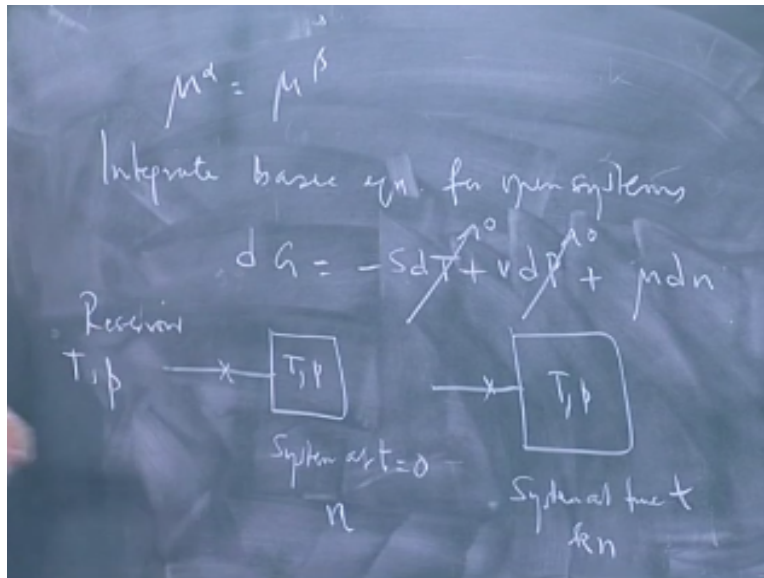 μ^α = μ^β
Integrate basic eqn. for open systems
dG = - SdT + VdP + μdn
0 0
Reservoir
T, p
T, p
T, p
System at t=0
n
System at time t
kn